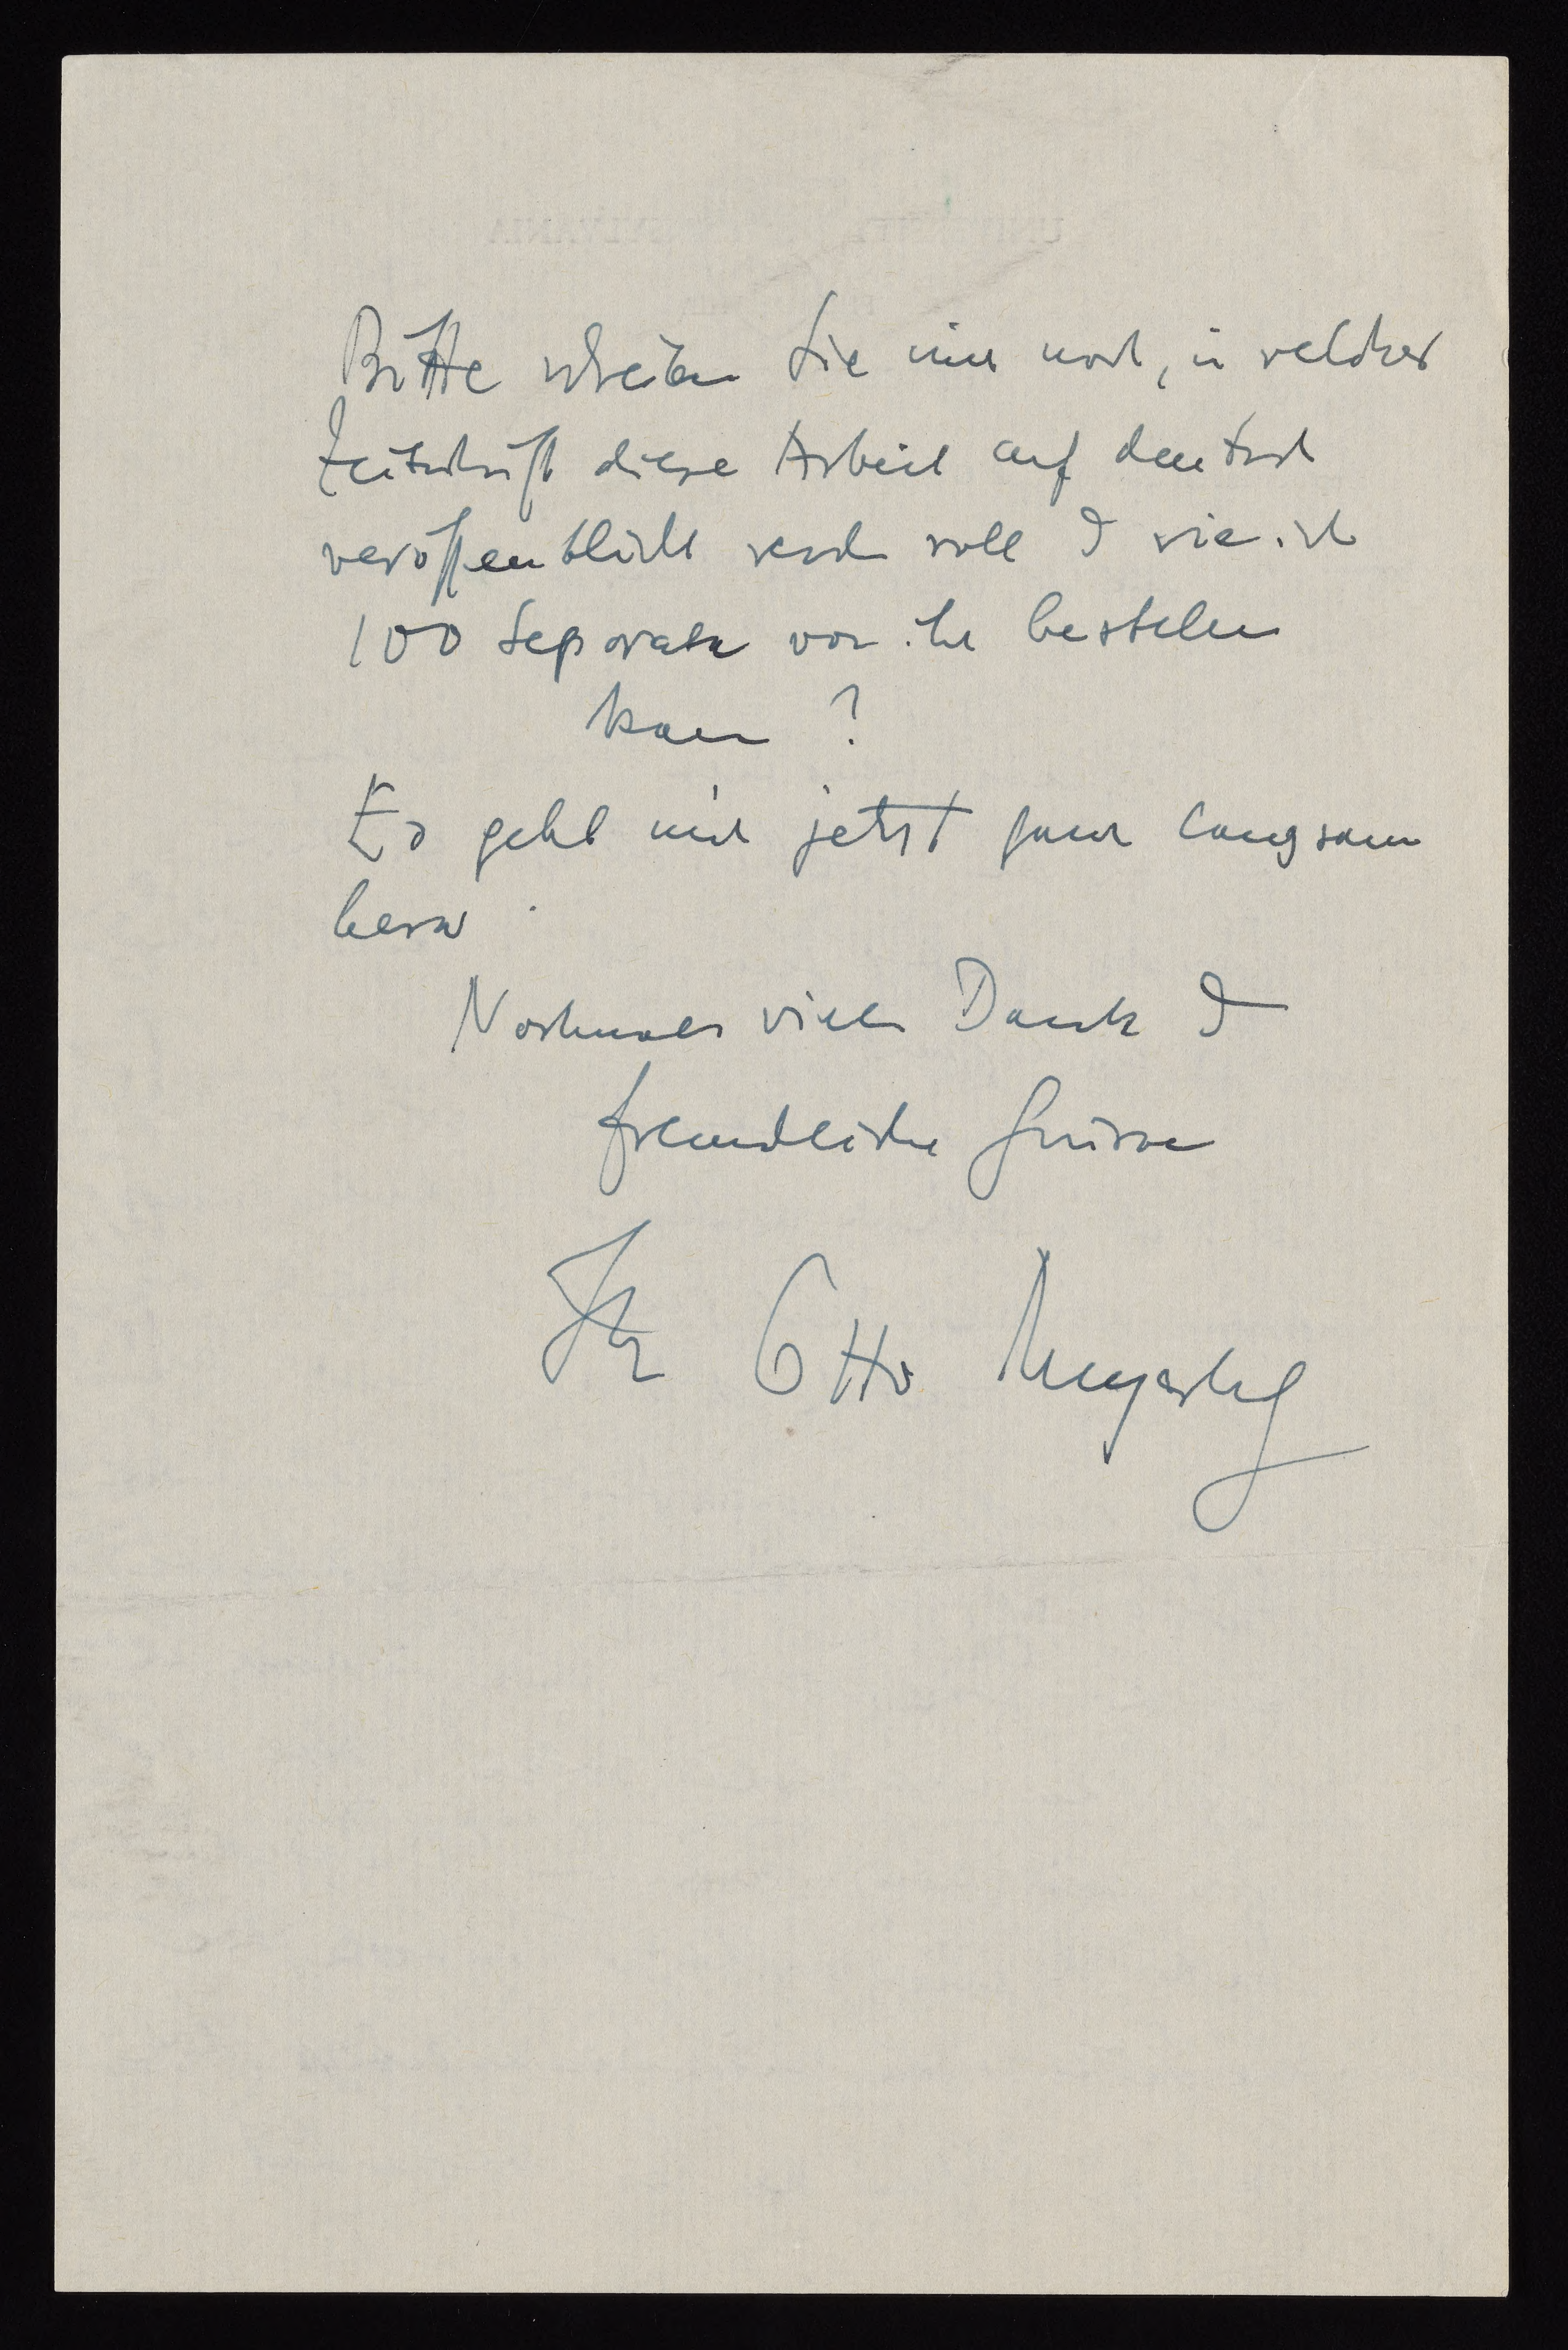 Bitte schreiben Sie mir noch, in welcher
Zeitschrift diese Arbeit auf deutsch
veröffentlicht werden soll & wie ich
100 Separata von ihr bestellen
kann ?
Es geht mir jetzt ganz langsam
besser.
Nochmals vielen Dank &
freundliche Grüsse
Ihr Otto Meyerhof